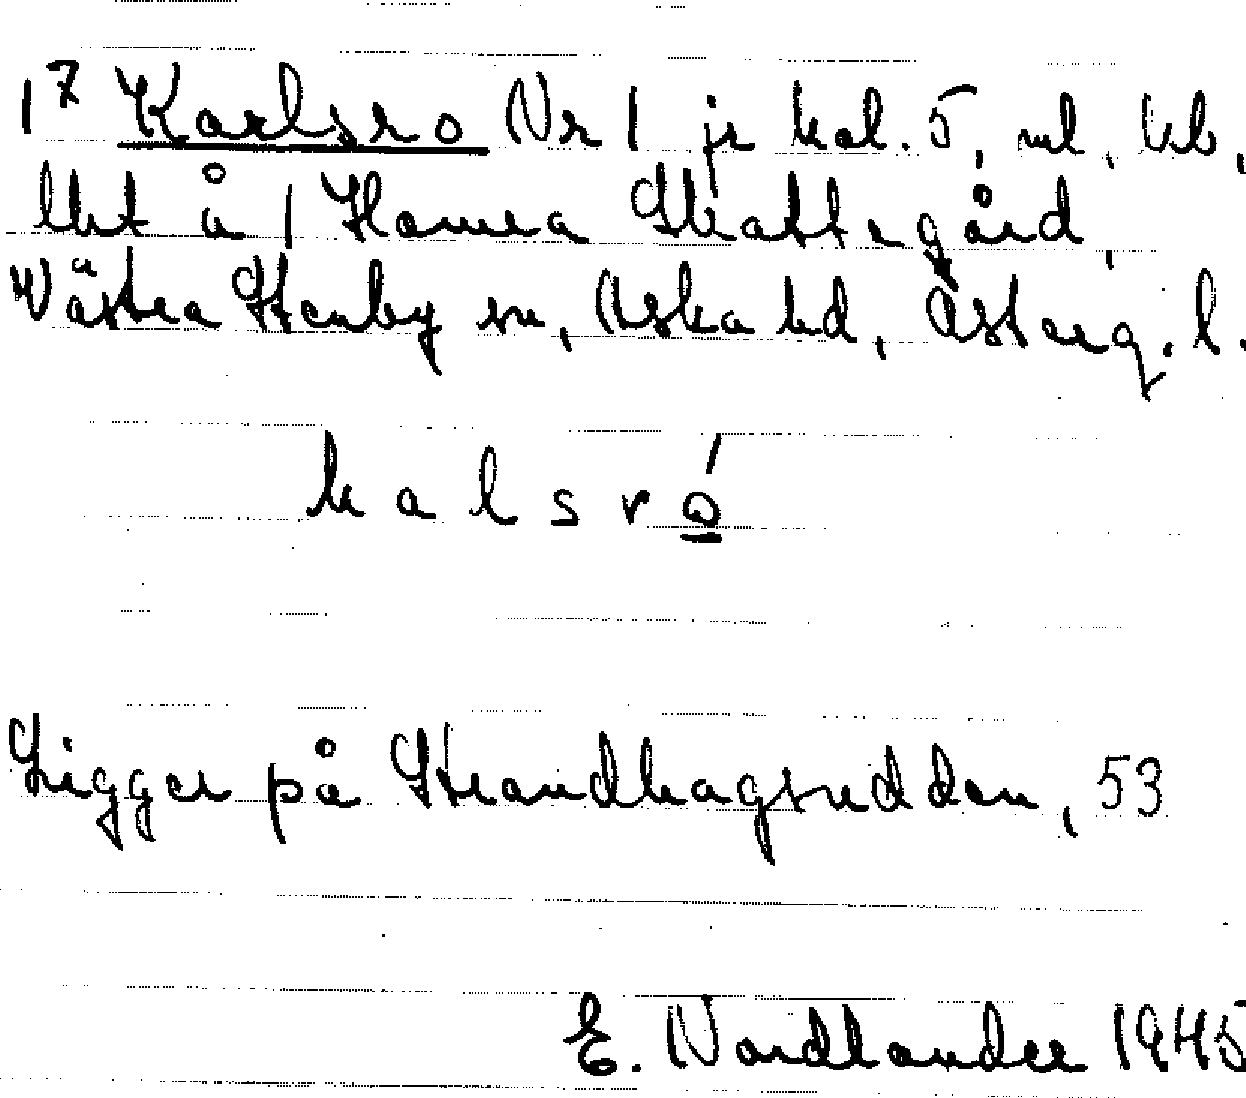 1⁷ Karlsro Nr 1 jr kol. 5, ml, kb,
lht å 1 Hamra Skattegård,
Västra Stenby sn, Aska hd, Österg. l.
kalsró̲
Ligger på Strandhagsudden, 53
E. Nordlander 1945